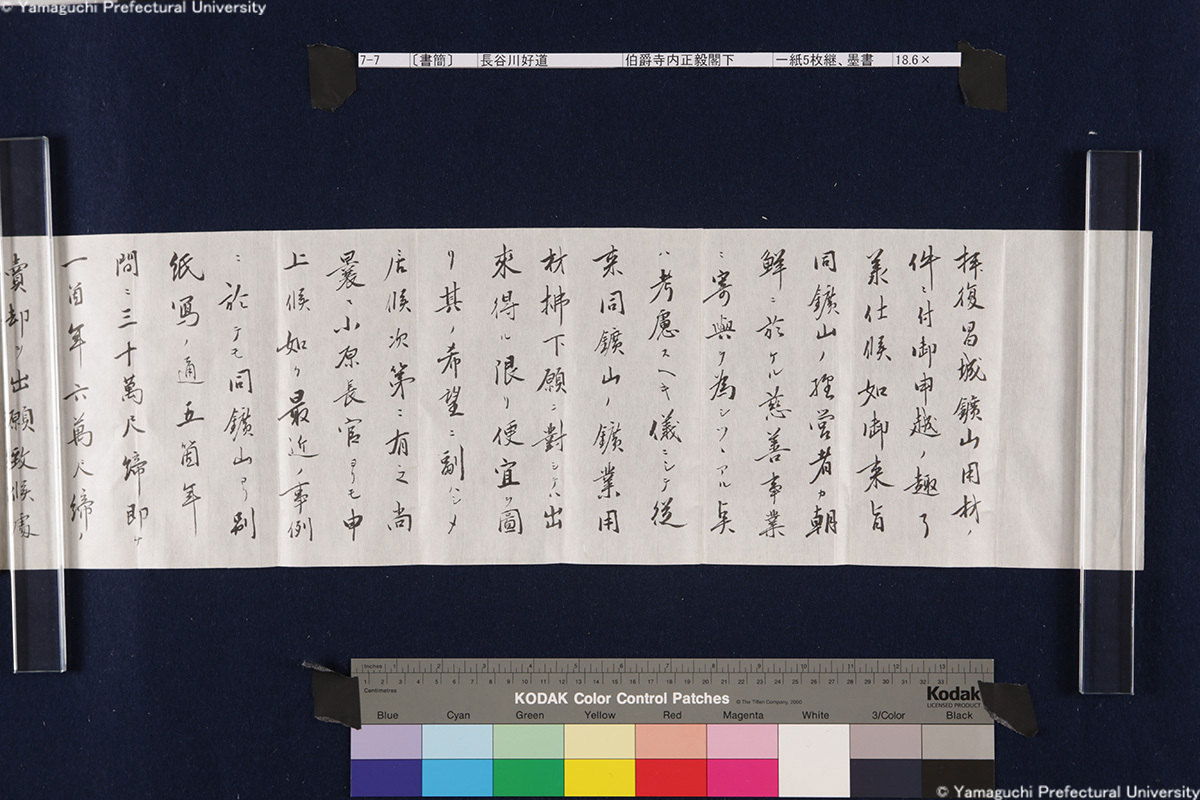 © Yamaguchi Prefectural University
7-7 〔書簡〕 長谷川好道 伯爵寺内正毅閣下 一紙5枚継、墨書 18.6×
拝復昌城鑛山用材ノ
件ニ付御申越ノ趣了
承仕候如御来旨
同鑛山ノ經営者カ朝
鮮ニ於ケル慈善事業
ニ寄與ヲ為シツヽアル点
ハ考慮スヘキ儀ニシテ従
来同鑛山ノ鑛業用
材拂下願ニ對シテハ出
來得ル限リ便宜ヲ圖
リ其ノ希望ニ副ハシメ
居候次第ニ有之尚
曩ニ小原長官ヨリモ申
上候如ク最近ノ事例
ニ於テモ同鑛山ヨリ別
紙寫ノ通五箇年
間ニ三十萬尺締即ケ
一箇年六萬尺締ノ
賣却ヲ出願致候處
Inches 1 2 3 4 5 6 7 8 9 10 11 12 13
1 2 3 4 5 6 7 8 9 10 11 12 13 14 15 16 17 18 19 20 21 22 23 24 25 26 27 28 29 30 31 32 33
Centimetres
KODAK Color Control Patches
© The Tiffen Company, 2000
Kodak
LICENSED PRODUCT
Blue Cyan Green Yellow Red Magenta White 3/Color Black
© Yamaguchi Prefectural University